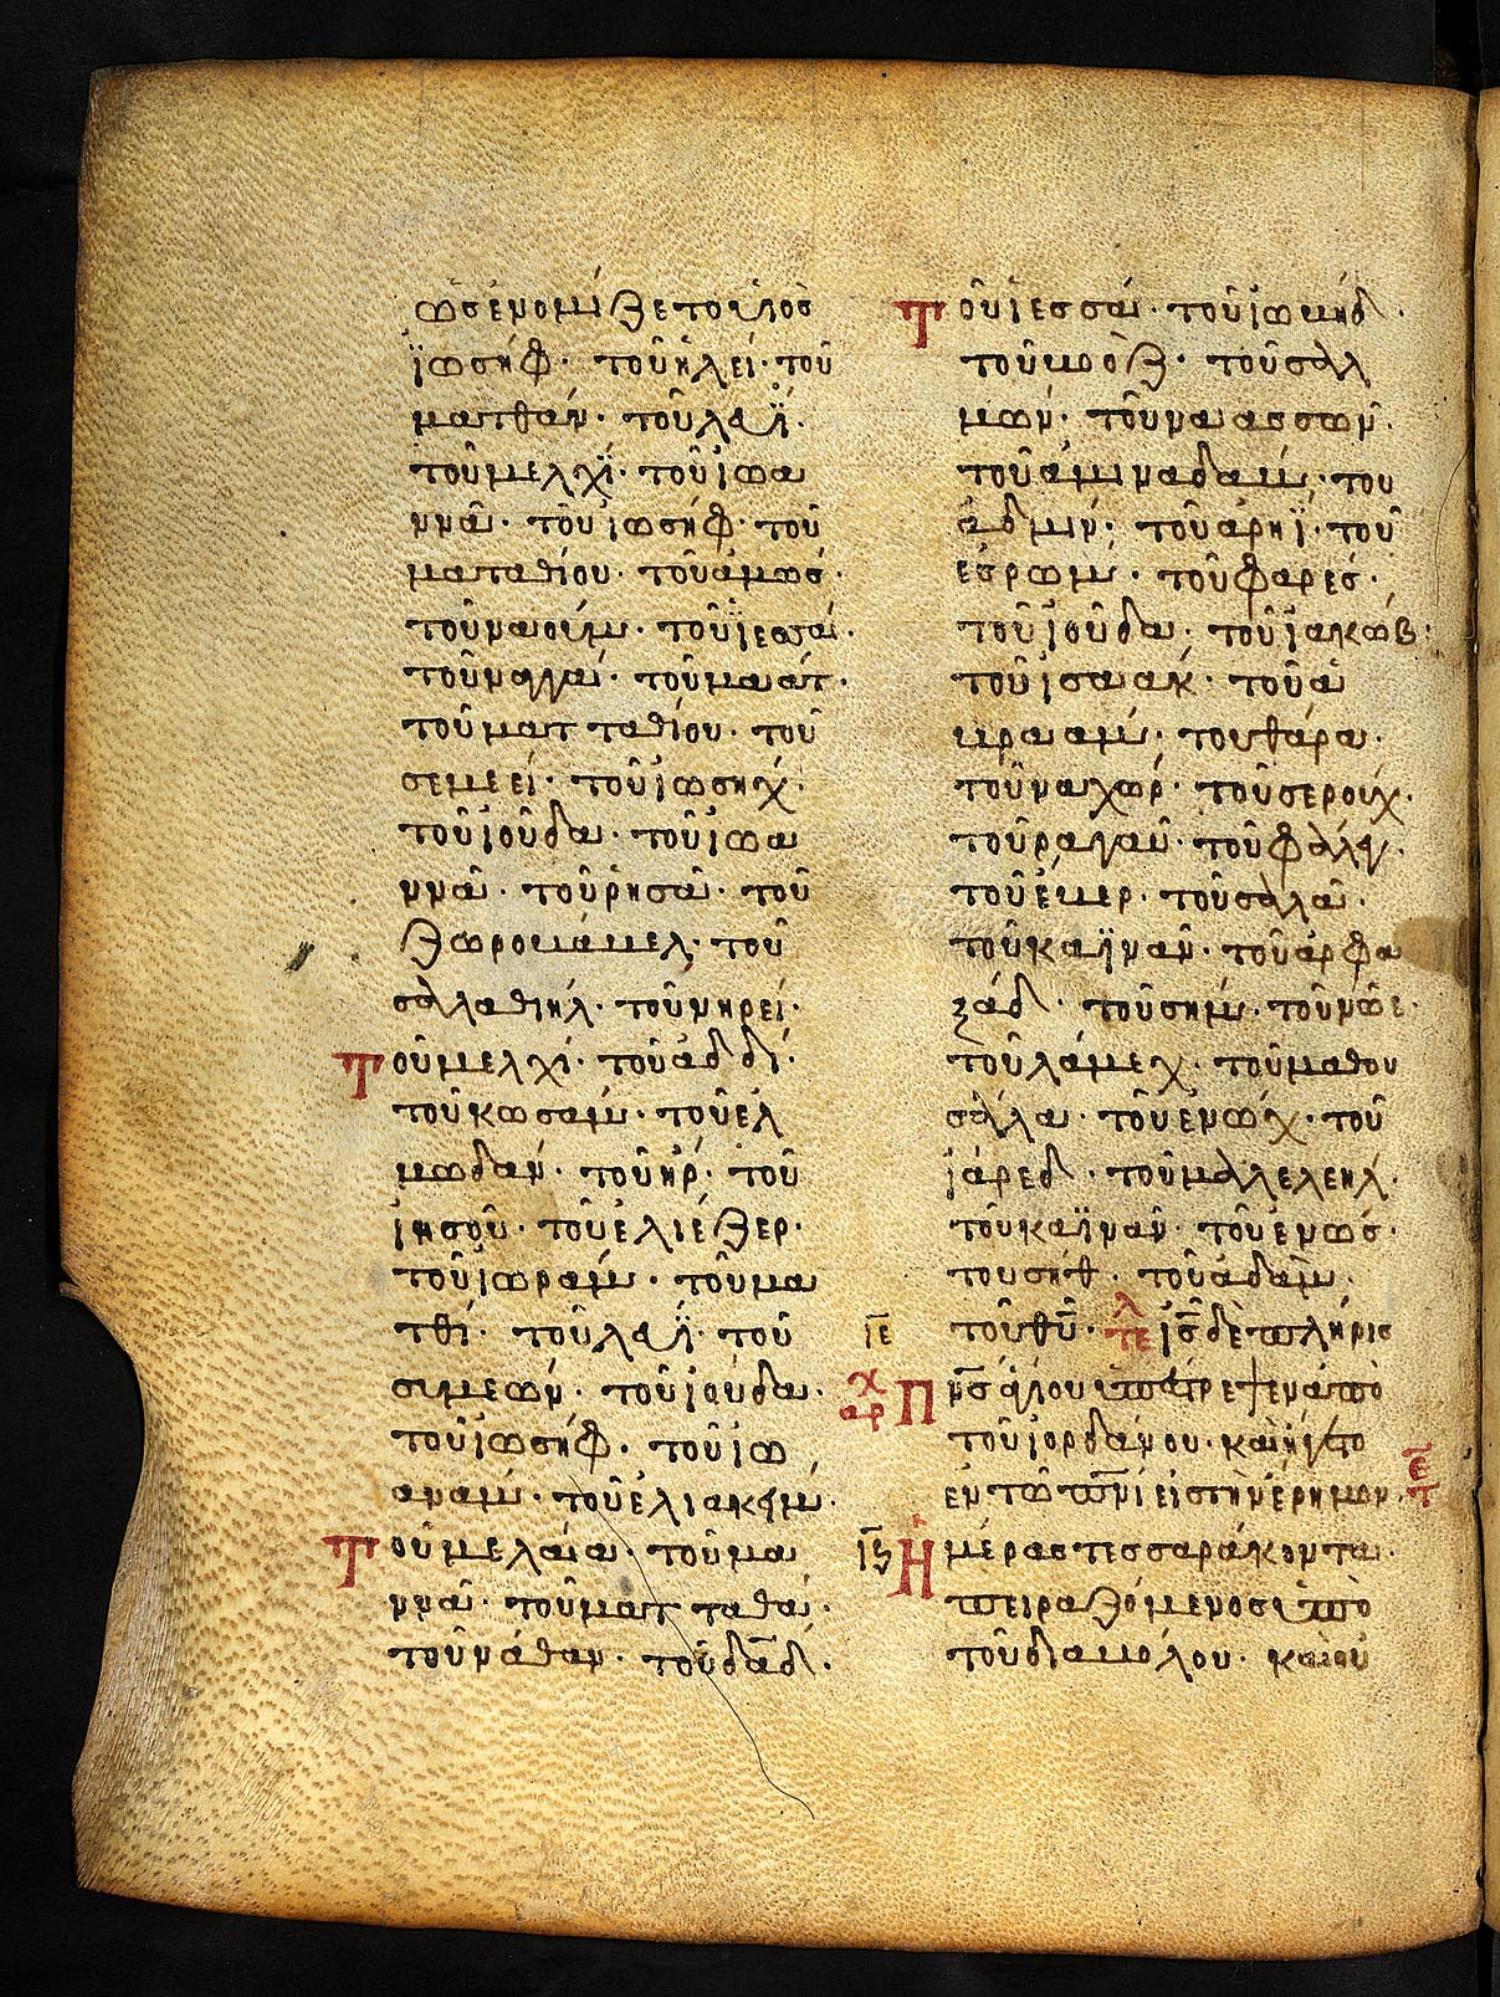 ὡς ἐνομίζετο υἱὸς
ἰωσήφ· τοῦ ἡλεί· τοῦ
ματθάν· τοῦ λευΐ·
τοῦ μελχΐ· τοῦ ἰωα
ννᾶ· τοῦ ἰωσήφ· τοῦ
ματαθίου· τοῦ ἀμώς·
τοῦ ναούμ· τοῦ
τοῦ ναγγαί· τοῦ μαάτ·
τοῦ ματταθίου· τοῦ
σεμεεί· τοῦ ἰωσήχ·
τοῦ ἰούδα· τοῦ ἰωα
ννᾶ· τοῦ ῥησᾶ· τοῦ
ζωροβάβελ· τοῦ
σαλαθιήλ· τοῦ νηρεί·
Τοῦ μελχί· τοῦ ἀδδί·
τοῦ κωσάμ· τοῦ ἐλ
μωδάν· τοῦ ἤρ· τοῦ
ἰησοῦ· τοῦ ἐλιέζερ·
τοῦ ἰωράμ· τοῦ μα
τθί· τοῦ λευΐ· τοῦ
σιμεών· τοῦ ἰούδα·
τοῦ ἰωσήφ· τοῦ ἰω
ανάμ· τοῦ ἐλιακείμ·
Τοῦ μελαία· τοῦ μα
ννᾶ· τοῦ ματταθά·
τοῦ νάθαν· τοῦ δᾱδ·
Τοῦ ἰεσσαί· τοῦ ἰωβήδ·
τοῦ βοόζ· τοῦ σαλ
μών· τοῦ ναασσών·
τοῦ ἀμιναδάμ· του
ἀδμίν· τοῦ ἀρηΐ· τοῦ
ἐσρώμ· τοῦ φαρές·
τοῦ ἰούδα· τοῦ ἰακώβ·
τοῦ ἰσαάκ· τοῦ ἀ
βραάμ· του θάρα·
τοῦ ναχώρ· τοῦ σερούχ·
τοῦ ραγαῦ· τοῦ φάλεγ·
τοῦ ἔβερ· τοῦ σαλᾶ·
τοῦ καϊνάν· τοῦ ἀρφα
ξάδ· τοῦ σήμ· τοῦ νῶε·
τοῦ λάμεχ· τοῦ μαθου
σάλα· τοῦ ἐνώχ· τοῦ
ἰάρεδ· τοῦ μαλελεήλ·
τοῦ καϊνάν· τοῦ ἐνώς·
του σήθ· τοῦ ἀδάμ·
ῑε τοῦ θῡ· τελ ἰς̄ δὲ πλήρις
χ αρ Π πν̄ς ἁγίου ὑπέστρεψεν ἀπὸ
τοῦ ἰορδάνου· καὶ ἤγετο
ἐν τῶ πν̄ι εἰς τὴν ἔρημον· ετ
ῑς Ἡμέρας τεσσαράκοντα·
πειραζόμενος ὑπὸ
τοῦ διαβόλου· καὶ οὐ